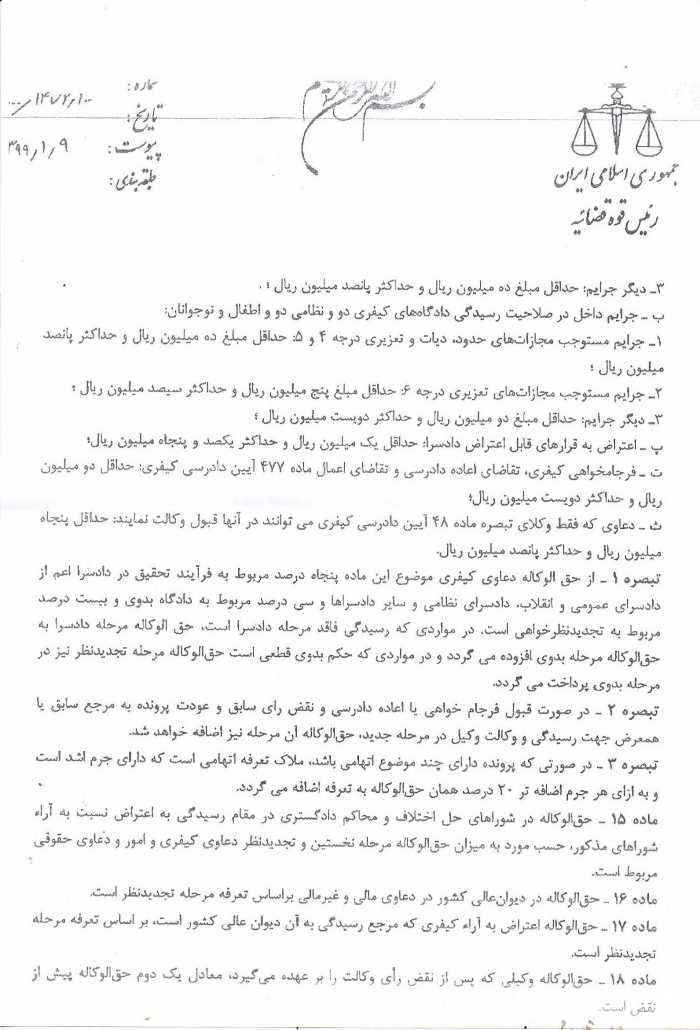 بسم الله الرحمن الرحیم
جمهوری اسلامی ایران
رئیس قوه قضائیه
شماره : ۱۴۷۲٫۱۰۰/۰۰۰
تاریخ :
پیوست : ۳۹۹٫۱٫۹
طبقه بندی :
۳ـ دیگر جرایم: حداقل مبلغ ده میلیون ریال و حداکثر پانصد میلیون ریال ؛ .
ب ـ جرایم داخل در صلاحیت رسیدگی دادگاه‌های کیفری دو و نظامی دو و اطفال و نوجوانان:
۱ـ جرایم مستوجب مجازات‌های حدود، دیات و تعزیری درجه ۴ و ۵: حداقل مبلغ ده میلیون ریال و حداکثر پانصد
میلیون ریال ؛
۲ـ جرایم مستوجب مجازات‌های تعزیری درجه ۶: حداقل مبلغ پنج میلیون ریال و حداکثر سیصد میلیون ریال ؛
۳ـ دیگر جرایم: حداقل مبلغ دو میلیون ریال و حداکثر دویست میلیون ریال ؛
پ ـ اعتراض به قرارهای قابل اعتراض دادسرا: حداقل یک میلیون ریال و حداکثر یکصد و پنجاه میلیون ریال؛
ت ـ فرجامخواهی کیفری، تقاضای اعاده دادرسی و تقاضای اعمال ماده ۴۷۷ آیین دادرسی کیفری: حداقل دو میلیون
ریال و حداکثر دویست میلیون ریال؛
ث ـ دعاوی که فقط وکلای تبصره ماده ۴۸ آیین دادرسی کیفری می توانند در آنها قبول وکالت نمایند: حداقل پنجاه
میلیون ریال و حداکثر پانصد میلیون ریال.
تبصره ۱ ـ از حق الوکاله دعاوی کیفری موضوع این ماده پنجاه درصد مربوط به فرآیند تحقیق در دادسرا اعم از
دادسرای عمومی و انقلاب، دادسرای نظامی و سایر دادسراها و سی درصد مربوط به دادگاه بدوی و بیست درصد
مربوط به تجدیدنظرخواهی است. در مواردی که رسیدگی فاقد مرحله دادسرا است، حق الوکاله مرحله دادسرا به
حق‌الوکاله مرحله بدوی افزوده می گردد و در مواردی که حکم بدوی قطعی است حق‌الوکاله مرحله تجدیدنظر نیز در
مرحله بدوی پرداخت می گردد.
تبصره ۲ ـ در صورت قبول فرجام خواهی یا اعاده دادرسی و نقض رای سابق و عودت پرونده به مرجع سابق یا
همعرض جهت رسیدگی و وکالت وکیل در مرحله جدید، حق‌الوکاله آن مرحله نیز اضافه خواهد شد.
تبصره ۳ ـ در صورتی که پرونده دارای چند موضوع اتهامی باشد، ملاک تعرفه اتهامی است که دارای جرم اشد است
و به ازای هر جرم اضافه تر ۲۰ درصد همان حق‌الوکاله به تعرفه اضافه می گردد.
ماده ۱۵ ـ حق‌الوکاله در شوراهای حل اختلاف و محاکم دادگستری در مقام رسیدگی به اعتراض نسبت به آراء
شوراهای مذکور، حسب مورد به میزان حق‌الوکاله مرحله نخستین و تجدیدنظر دعاوی کیفری و امور و دعاوی حقوقی
مربوط است.
ماده ۱۶ ـ حق‌الوکاله در دیوان‌عالی کشور در دعاوی مالی و غیرمالی براساس تعرفه مرحله تجدیدنظر است.
ماده ۱۷ ـ حق‌الوکاله اعتراض به آراء کیفری که مرجع رسیدگی به آن دیوان عالی کشور است، بر اساس تعرفه مرحله
تجدیدنظر است.
ماده ۱۸ ـ حق‌الوکاله وکیلی که پس از نقض رأی وکالت را بر عهده می‌گیرد، معادل یک دوم حق‌الوکاله پیش از
نقض است.